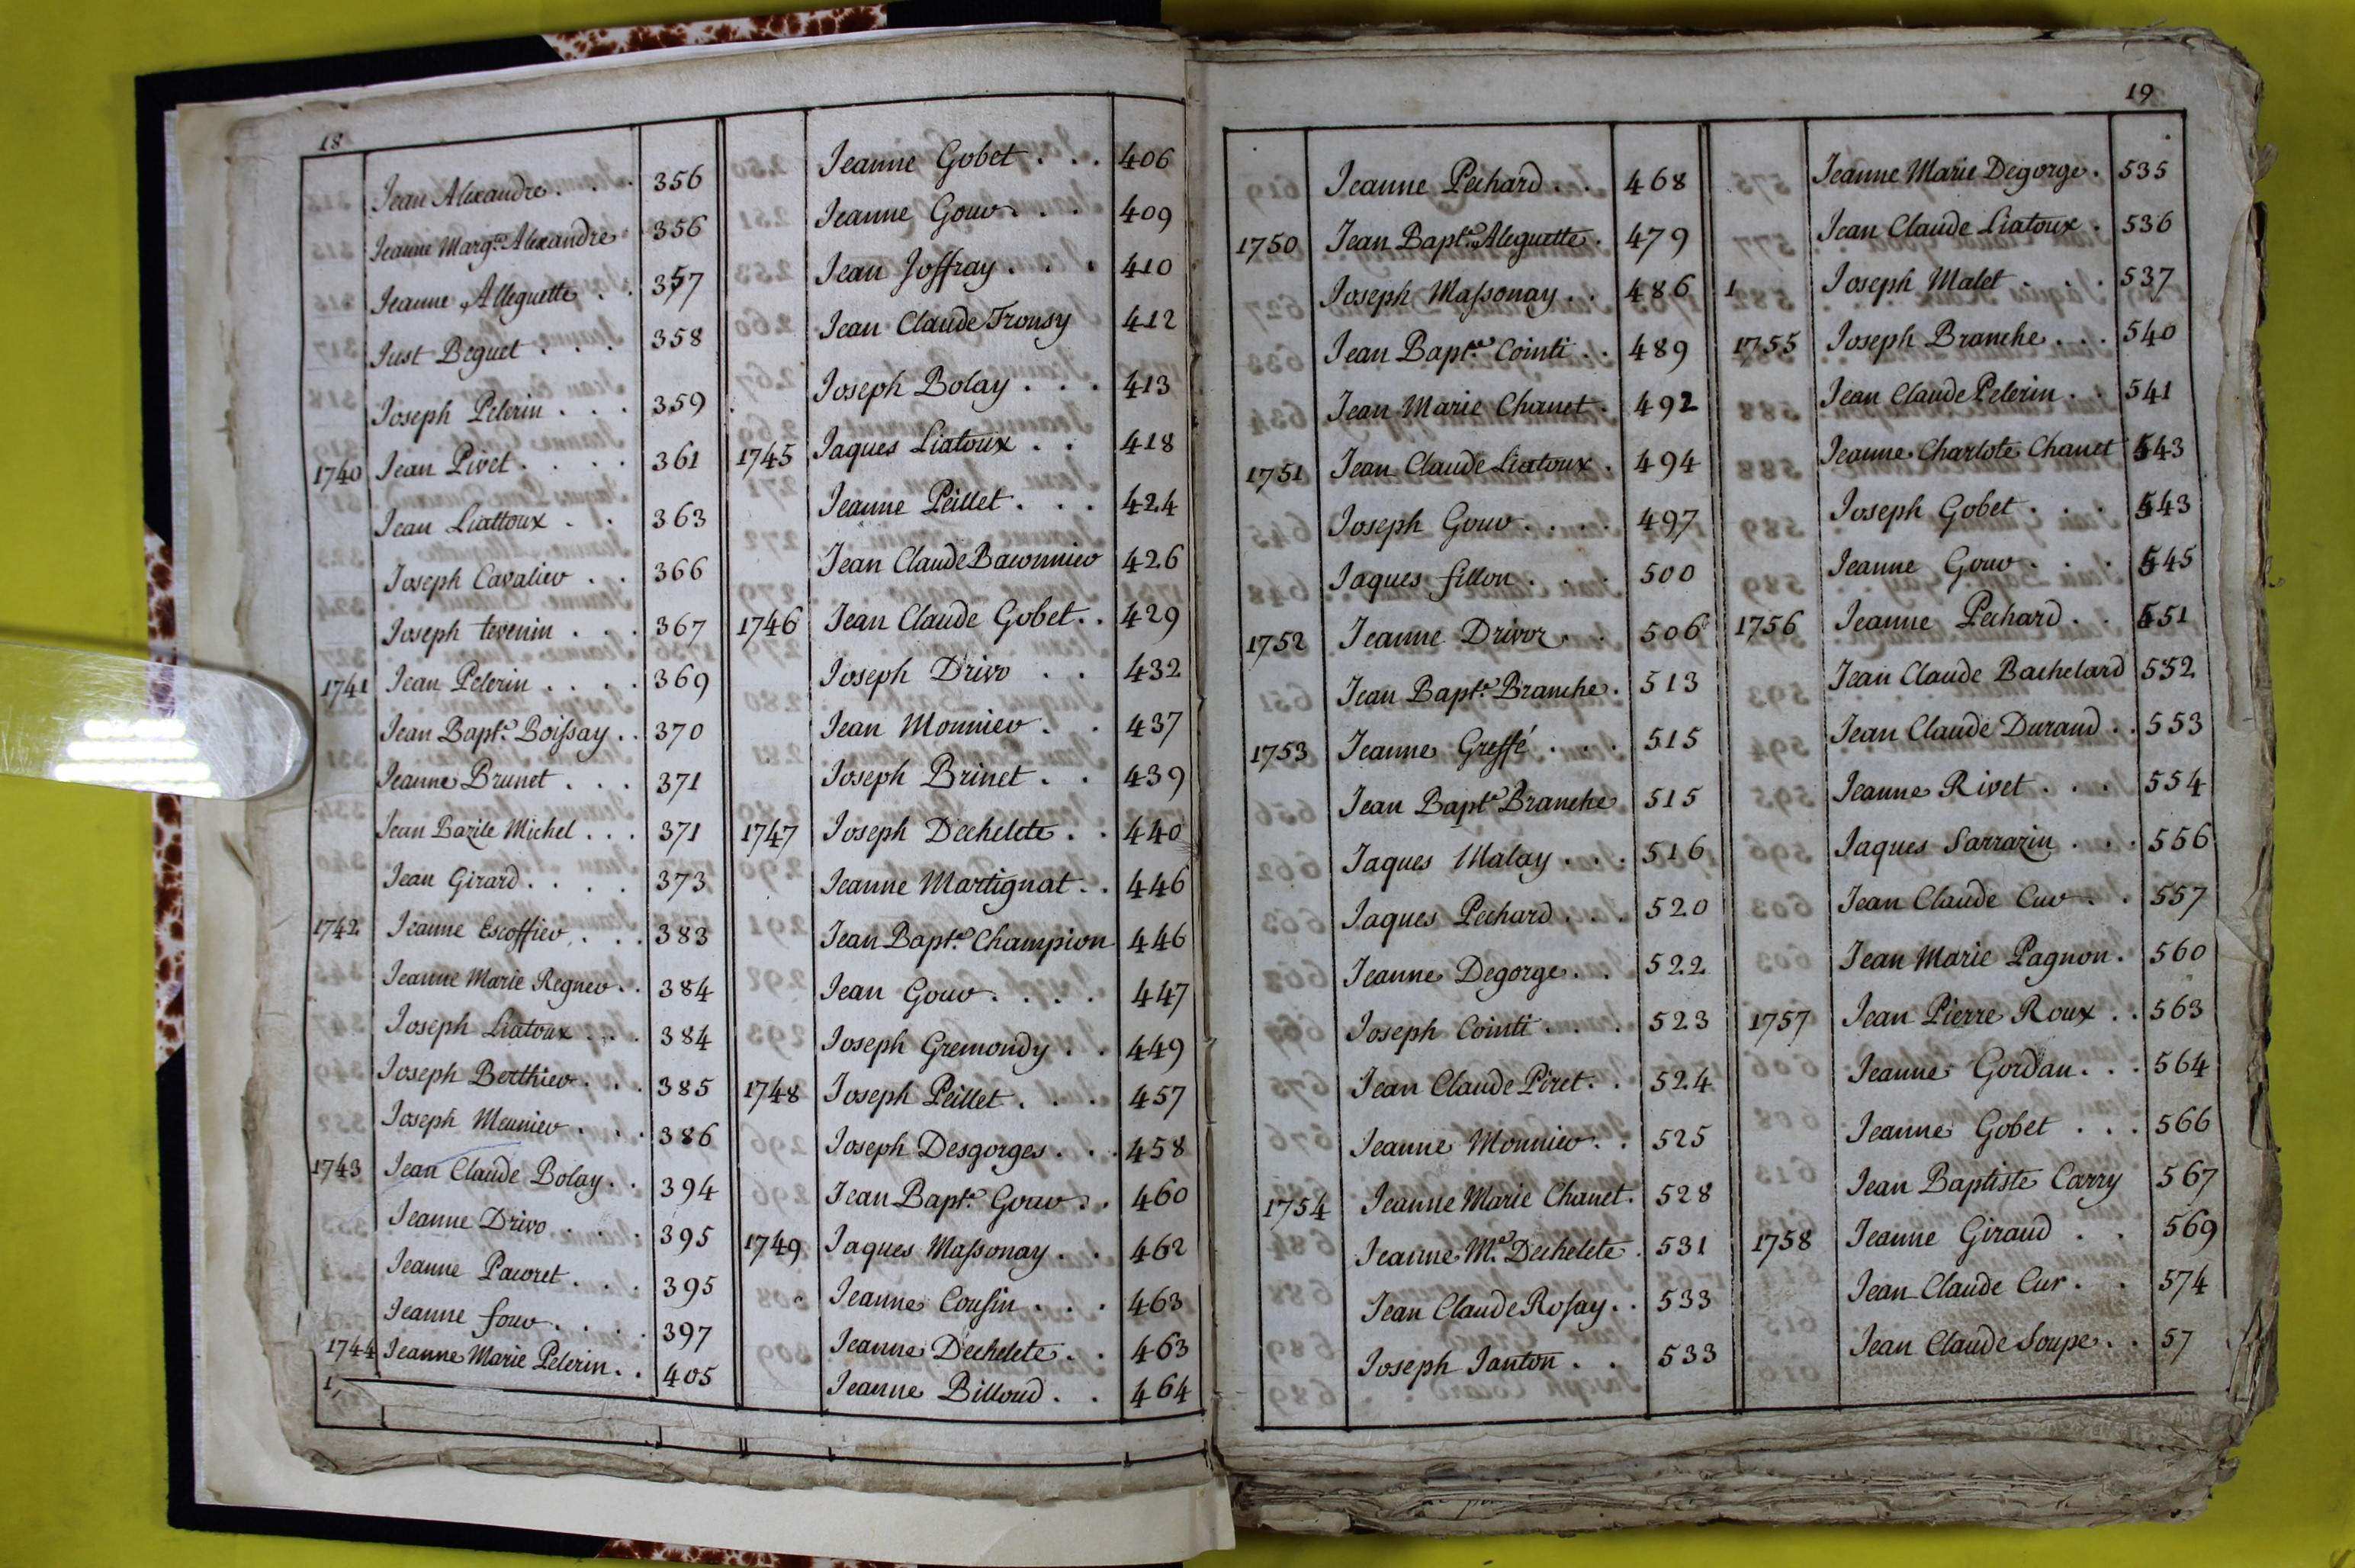 18
Jean Alexandre . . . 356
Jeanne Marg.te Alexandre 356
Jeanne Alleguette . . 357
Just Beguet . . . 358
Joseph Pelerin . . . 359
1740 Jean Pivet . . . . 361
Jean Liattoux . . 363
Joseph Cavalier . . 366
Joseph tevenin . . . 367
1741 Jean Pelerin . . . . 369
Jean Bapt.e Boissay . . 370
Jeanne Brunet . . . 371
Jean Bazile Michel . . . 371
Jean Girard . . . . 373
1742 Jeanne Escoffier . . . 383
Jeanne Marie Regner . . 384
Joseph Liatoux . . . 384
Joseph Berthier . . . 385
Joseph Meunier . . . 386
1743 Jean Claude Bolay . . 394
Jeanne Drivo . . . 395
Jeanne Pauret . . . 395
Jeanne four . . . . 397
1744 Jeanne Marie Pelerin . . 405
Jeanne Gobet . . . 406
Jeanne Gour . . . 409
Jean Joffray . . . 410
Jean Claude Tronsy 412
Joseph Bolay . . . 413
1745 Jaques Liatoux . . 418
Jeanne Peillet . . . 424
Jean Claude 426
1746 Jean Claude Gobet . . 429
Joseph Drivo . . 432
Jean Monnier . . 437
Joseph Brinet . . 439
1747 Joseph Dechelete . . 440
Jeanne Martignat . . 446
Jean Bapt.e Champion 446
Jean Gour . . . . 447
Joseph Gremondy . . 449
1748 Joseph Peillet . . . 457
Joseph Desgorges . . . 458
Jean Bapt.e Gour . . 460
1749 Jaques Massonay . . 462
Jeanne Cousin . . . 463
Jeanne Dechelete . . 463
Jeanne Billoud . . 464
19
Jeanne Pechard . . 468
1750 Jean Bapt.e Aleguette . 479
Joseph Massonay . . 486
Jean Bapt.te Cointi . . 489
Jean Marie Chanet . 492
1751 Jean Claude Liatoux . 494
Joseph Gour . . . . 497
Jaques fillon . . . 500
1752 Jeanne Drivor . . 506
Jean Bapt.e Branche . 513
1753 Jeanne Greffé . . . 515
Jean Bapt.e Branche 515
Jaques Malay . . . 516
Jaques Pechard . . . 520
Jeanne Degorge . . 522
Joseph Cointi . . . 523
Jean Claude Piret . . 524
Jeanne Monnier . . 525
1754 Jeanne Marie Chanet . 528
Jeanne M.e Dechelete . 531
Jean Claude Rosay . . 533
Joseph Janton . . 533
Jeanne Marie Degorge . 535
Jean Claude Liatoux . 536
1 Joseph Malet . . . 537
1755 Joseph Branche . . . 540
Jean Claude Pelerin . . 541
Jeanne Charlote Chanet 543
Joseph Gobet . . . 543
Jeanne Gour . . . 545
1756 Jeanne Pechard . . 551
Jean Claude Bachelard 552
Jean Claude Durand . . 553
Jeanne Rivet . . . 554
Jaques Sarrazin . . . 556
Jean Claude Cur . . 557
Jean Marie Pagnon . 560
1757 Jean Pierre Roux . . 563
Jeanne Gordan . . . 564
Jeanne Gobet . . . 566
Jean Baptiste Carry 567
1758 Jeanne Giraud . . 569
Jean Claude Cur . . 574
Jean Claude Soupe . . 57